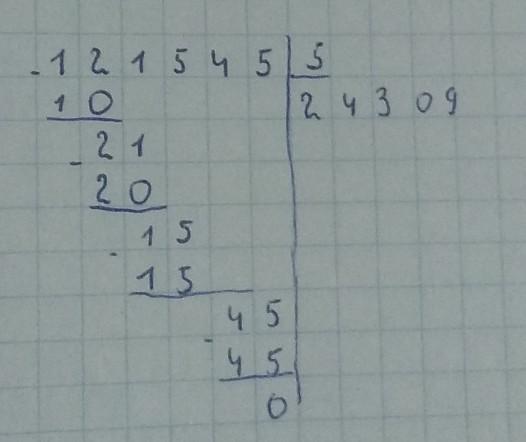 -121545 5
10 24309
-21
20
-15
15
-45
45
0